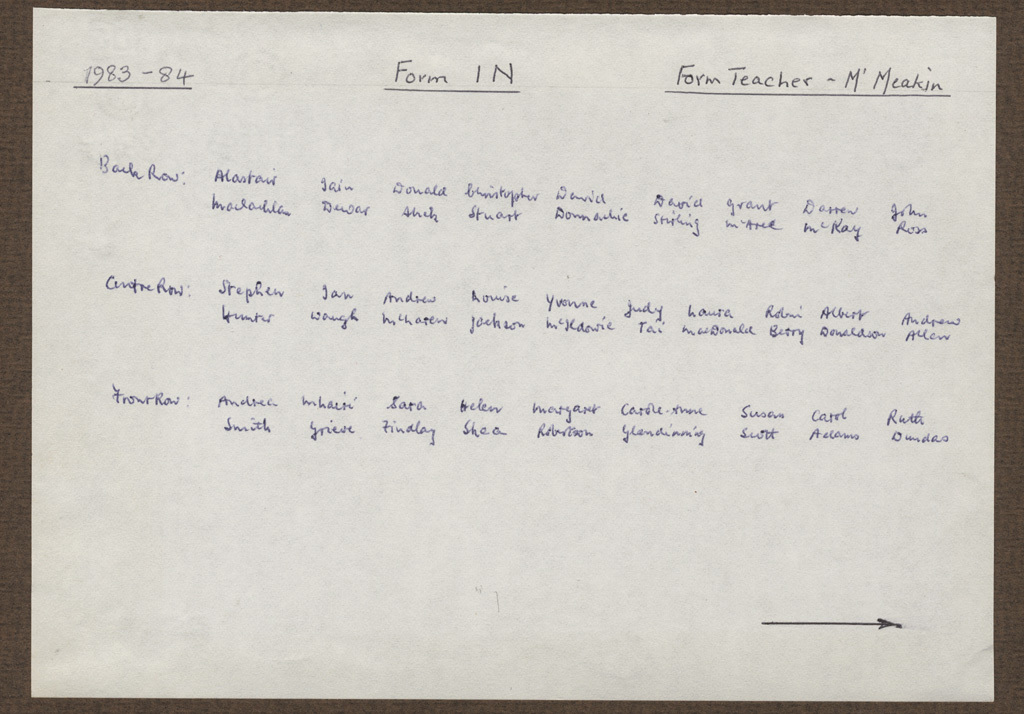 1983-84 Form 1N Form Teacher - Mr Meakin
Back Row: Alastair Iain Donald Christopher David David Grant Darren John
Maclachlan Dewar Stuart Donnachie Stirling McAree McKay Ross
Centre Row: Stephen Ian Andrew Louise Yvonne Judy Laura Robin Albert Andrew
Hunter Waugh McLaren Jackson McIldowie Tai MacDonald Berry Donaldson Allan
Front Row: Andrea Mhairi Sara Helen Margaret Carole-Anne Susan Carol Ruth
Smith Grieve Findlay Shea Robertson Glendinning Scott Adams Dundas